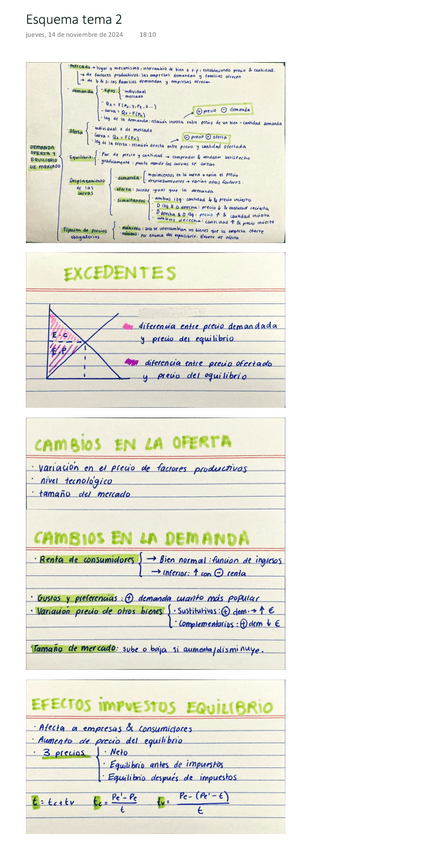 Esquema tema 2
jueves, 14 de noviembre de 2024 18:10
mercado → lugar o mecanismo: intercambio de bien o f.p. estableciendo precio & cantidad.
→ de factores productivos: las empresas demandan y familias ofrecen
→ de b & s: las familias demandan y empresas ofrecen
demanda
tipos
individual
mercado
⊕ precio ⊖ demanda
ley de la demanda: relación inversa entre precio de un bien - cantidad demanda
Oferta
individual o de mercado
⊕ precio ⊕ oferta
ley de la oferta: relación directa entre precio y cantidad ofertada
DEMANDA
OFERTA Y
EQUILIBRIO
DE MERCADO
Equilibrio
Par de precio y cantidad → comprador & vendedor satisfecho
gráficamente: punto donde las curvas se cortan
Desplazamiento
de las
curvas
demanda
movimientos en la curva → varía el precio
desplazamientos → varían otros factores.
oferta: sucede igual que la demanda.
simultáneos
Fijación de precios
obligatorios
EXCEDENTES
E.C
E.P
diferencia entre precio demandada
y precio del equilibrio
diferencia entre precio ofertado
y precio del equilibrio
CAMBIOS EN LA OFERTA
· variación en el precio de factores productivos
· nivel tecnológico
· tamaño del mercado
CAMBIOS EN LA DEMANDA
· Renta de consumidores → Bien normal: función de ingresos
→ Inferior: ↑ con ⊖ renta
· Gustos y preferencias: ⊕ demanda cuanto más popular
· Variación precio de otros bienes · Sustitutivos: ⊕ dem. → ↑ €
· Complementarios: ⊕ dem ↓ €
Tamaño de mercado: sube o baja si aumenta/disminuye.
EFECTOS IMPUESTOS EQUILIBRIO
· Afecta a empresas & consumidores
· Aumento de precio del equilibrio
· 3 precios · Neto
· Equilibrio antes de impuestos
· Equilibrio después de impuestos
t = tc + tv tc = Pe' - Pe / t tv = Pe - (Pe' - t) / t